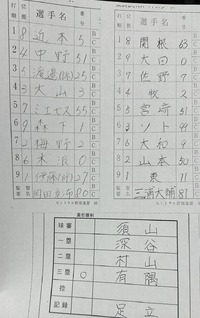 打順 位置 選手名 番号
1 8 近本 5
2 4 中野 51
3 5 渡邉(諒) 25
4 3 大山 3
5 7 ミエセス 55
6 9 森下 1
7 2 梅野 2
8 6 木浪 0
9 1 伊藤(将) 27
監督 岡田彰布 80
打順 位置 選手名 番号
1 8 関根 63
2 9 大田 0
3 7 佐野 7
4 4 牧 2
5 5 宮﨑 51
6 3 ソト 99
7 6 大和 9
8 2 山本 50
9 1 東 11
監督 三浦大輔 81
責任審判
球審 須山
一塁 深谷
二塁 村山
三塁 ○ 有隅
控
記録 足立